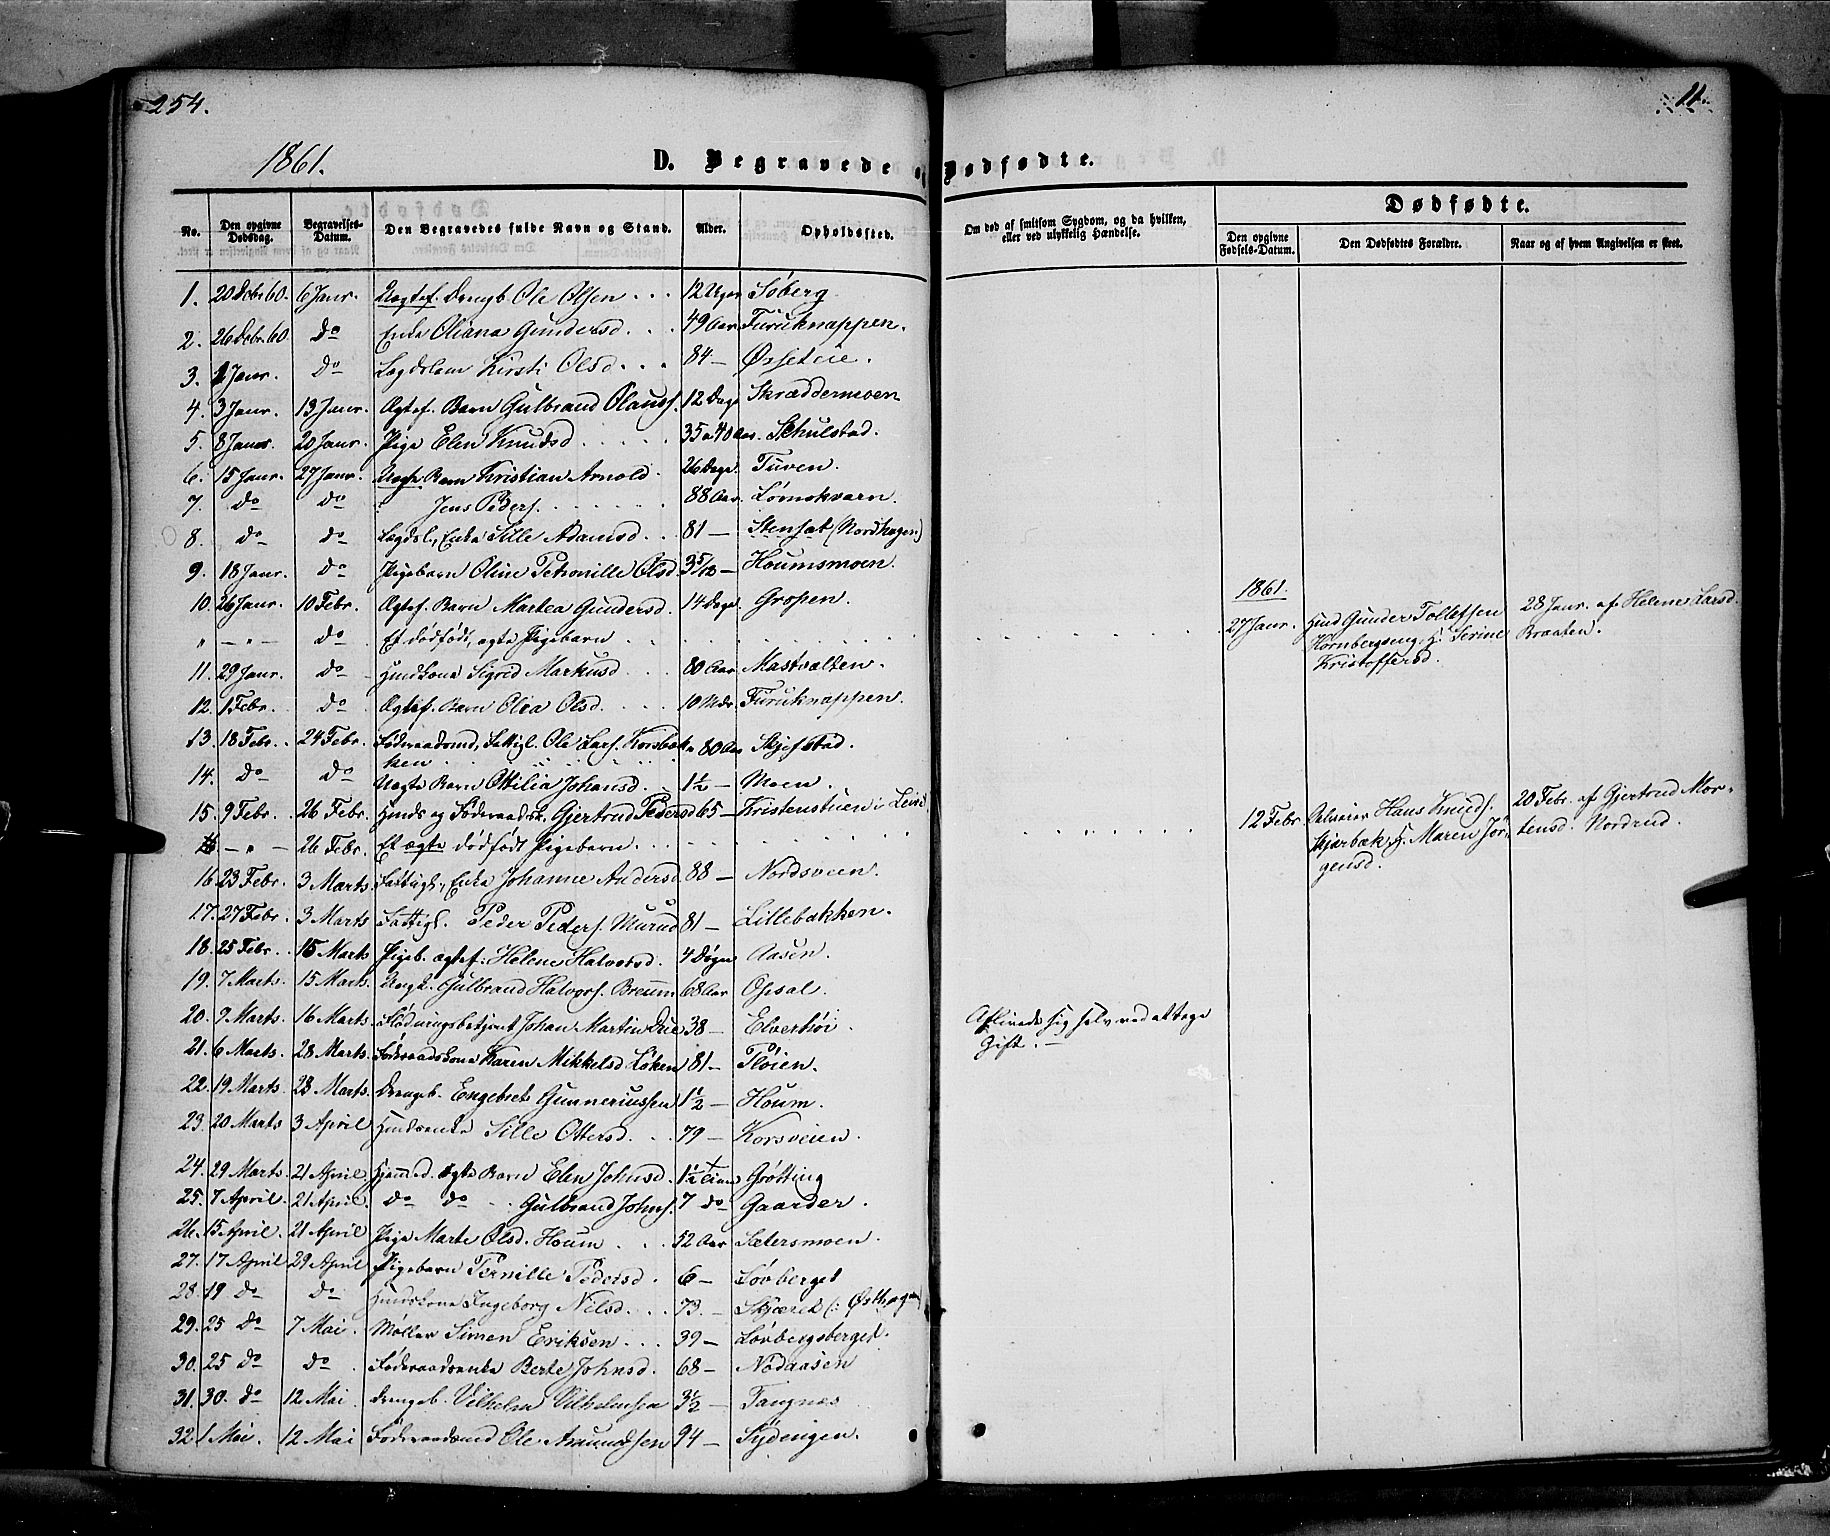 254.
11.
1861.
D. Begravede og Dødfødte.
No.
Den opgivne Dødsdag.
Begravelses-Datum.
Den Begravedes fulde Navn og Stand.
Alder.
Opholdssted.
Om død af smitsom Sygdom, og da hvilken, eller ved ulykkelig Hændelse.
Dødfødte.
Den opgivne Fødsels-Datum.
Den Dødfødtes Forældre.
Naar og af hvem Angivelsen er skeet.
1. 20 Dcbr 60. 6 Janr. Uægtef. Drengb. Ole Olsen 12 Uger Søberg
2. 26 Dcbr. 60 Do Enke Oliana Gundersd. 49 Aar Furuknappen.
3. 2 Janr. Do Lægdslem Kirsti Olsd. 84 — Øsseteie.
4. 3 Janr. 13 Janr. Ægtef. Barn Gulbrand Olauss. 12 Dage Skræddermoen
5. 8 Janr. 20 Janr. Pige Elen Knudsd 35 a 40 Aar. Schulstad.
6. 15 Janr. 27 Janr. Uægte Barn Kristian Arnold 26 Dage. Tuven.
7. Do Do Jens Peders. 88 Aar. Lømokvarn.
8. Do Do Lægdsl., Enke Sille Adamsd. 81 — Stensæt (Nordhagen)
9. 18 Janr. Do Pigebarn Oline Petronille Olsd 3 5/12 — Houmsmoen.
10. 26 Janr. 10 Febr. Ægtef. Barn Martea Gundersd. 14 Dage. Gropen.
" — " — Do Et dødfødt, ægte Pigebarn
1861.
27 Janr. Hmd Gunder Tollefsen Kornbergseng H. Serine Kristoffersd.
28 Janr. af Helene Larsd. Braaten.
11. 29 Janr. Do Hmdskone Sigrid Markusd 80 Aar. Mastvolten.
12. 1 Febr. Do Ægtef. Barn Olea Olsd. 10 Mdr. Furuknappen.
13. 18 Febr. 24 Febr. Føderaadsmd, Fattigl. Ole Lars. Korsbakken 80 Aar Skjefstad.
14. Do Do Uægte Barn Ottilia Johansd. 1½ — Moen.
15. 9 Febr. 26 Febr. Hmds og Føderaadsk. Gjertrud Pedersd 65 — Kristenstuen i
— " — 26 Febr. Et ægte dødfødt Pigebarn.
12 Febr. Selveier Hans Knuds. Skjærbæk H. Maren Jørgensd.
20 Febr. af Gjertrud Mortensd. Nordrud.
16. 23 Febr. 3 Marts Fattigl., Enke Johanne Andersd 88 — Nordsveen.
17. 27 Febr. 3 Marts Fattigl. Peder Peders. Murud 81 — Lillebakken.
18. 25 Febr. 15 Marts Pigeb. ægtef. Helene Halvorsd. 4 Døgn Aasen.
19. 7 Marts. 15 Marts. Ungk. Gulbrand Halvors. Breum 68 Aar Opsal.
20. 9 Marts. 16 Marts. Flødningsbetjent Johan Martin Due 38 — Elvertrøi.
Aflivede sig selv ved at tage Gift.
21. 6 Marts. 28 Marts. Føderaadskone Karen Mikkelsd Løken 81 — Fløien.
22. 19 Marts 28 Marts. Drengeb. Engebret Gunneriussen 1½ — Houm.
23. 20 Marts 3 April Hmdsenke Sille Ottersd. 79 — Korsveien.
24. 29 Marts. 21 April Hjemmed. ægte Barn Elen Johnsd. 1½ Time Grøtting
25. 7 April. 21 April. Do Do Gulbrand Johns. 7 Do Gaarder.
26. 15 April. 21 April Pige Marte Olsd. Houm 52 Aar Sætersmoen.
27. 17 April 29 April Pigebarn Pernille Pedersd. 6 — Løvberget
28. 19 Do Do Hmdskone Ingeborg Nilsd. 73. — Skjæret (: Østhagen)
29. 25 Do 7 Mai. Møller Simen Eriksen 39 — Løvbergsberget.
30. 25 Do Do Føderaadsenke Berte Johnsd. 68 — Nødaasen
31. 30. Do 12 Mai Drengeb. Vilhelm Vilhelmsen 3½ — Tangnes
32. 1 Mai. 12 Mai Føderaadsmd Ole Amundsen 94 — Sydengen.